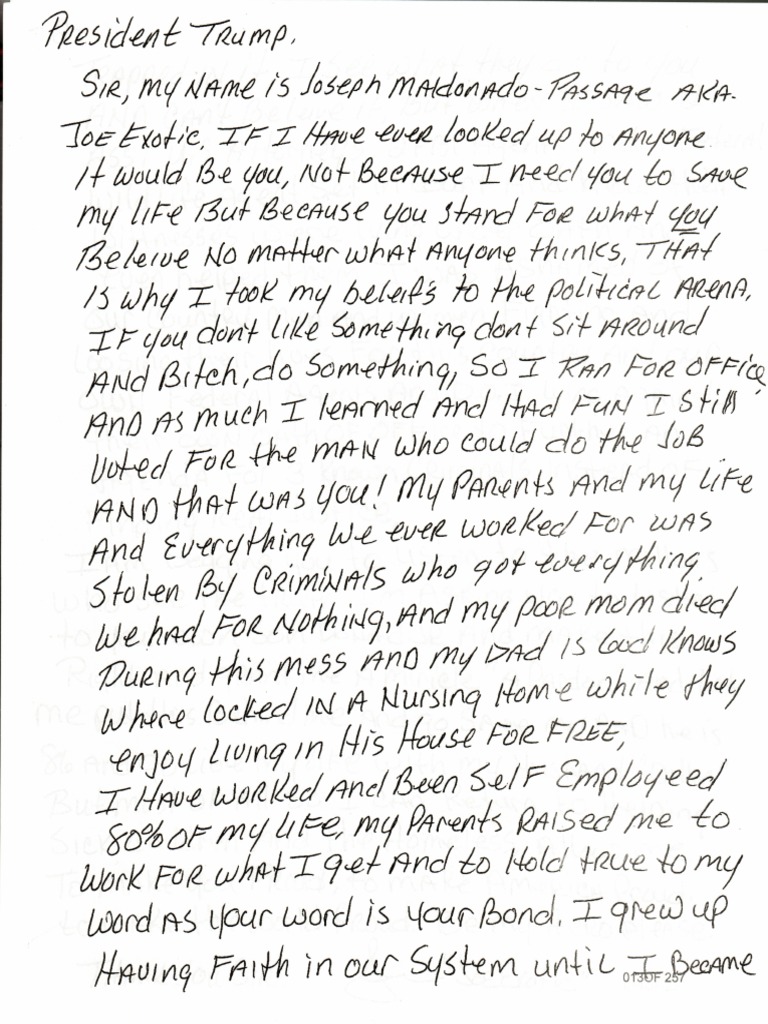 President Trump.
Sir, my name is Joseph Maldonado-Passage AKA.
Joe Exotic, If I have ever looked up to anyone.
It would be you, not because I need you to save
my life but because you stand for what you
beleive no matter what anyone thinks, That
is why I took my beleif's to the political arena,
If you don't like something dont sit around
and bitch, do something, so I ran for office,
and as much I learned and had fun I still
voted for the man who could do the job
and that was you! My parents and my life
and everything we ever worked for was
stolen by criminals who got everything
we had for nothing, and my poor mom died
during this mess and my dad is God knows
where locked in a nursing home while they
enjoy living in his house for free,
I have worked and been self employeed
80% of my life, my parents raised me to
work for what I get and to hold true to my
word as your word is your bond. I grew up
having faith in our system until I became
013OF 257